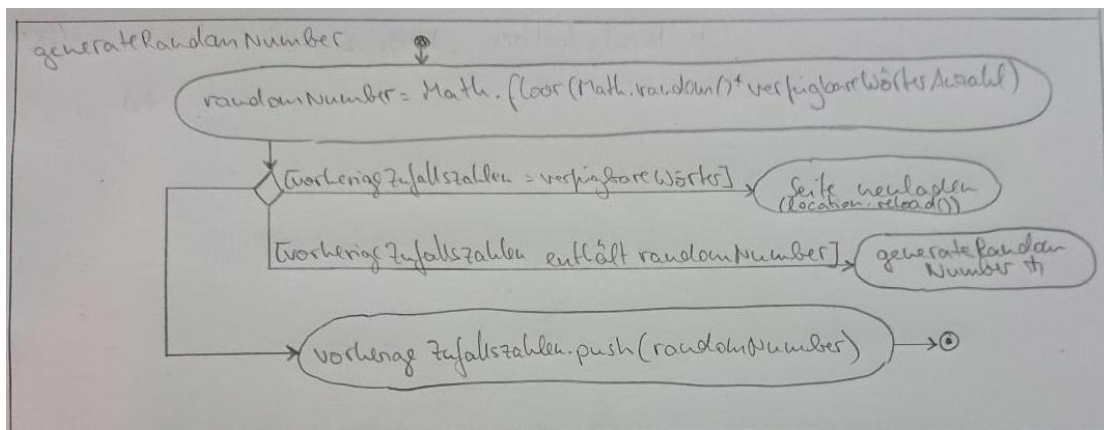 generateRandomNumber
randomNumber = Math.floor(Math.random()* verfügbareWörterAnzahl)
[vorherigeZufallszahlen = verfügbareWörter]
Seite neuladen
(location.reload())
[vorherigeZufallszahlen enthält randomNumber]
generateRandom
Number
vorherige Zufallszahlen.push(randomNumber)